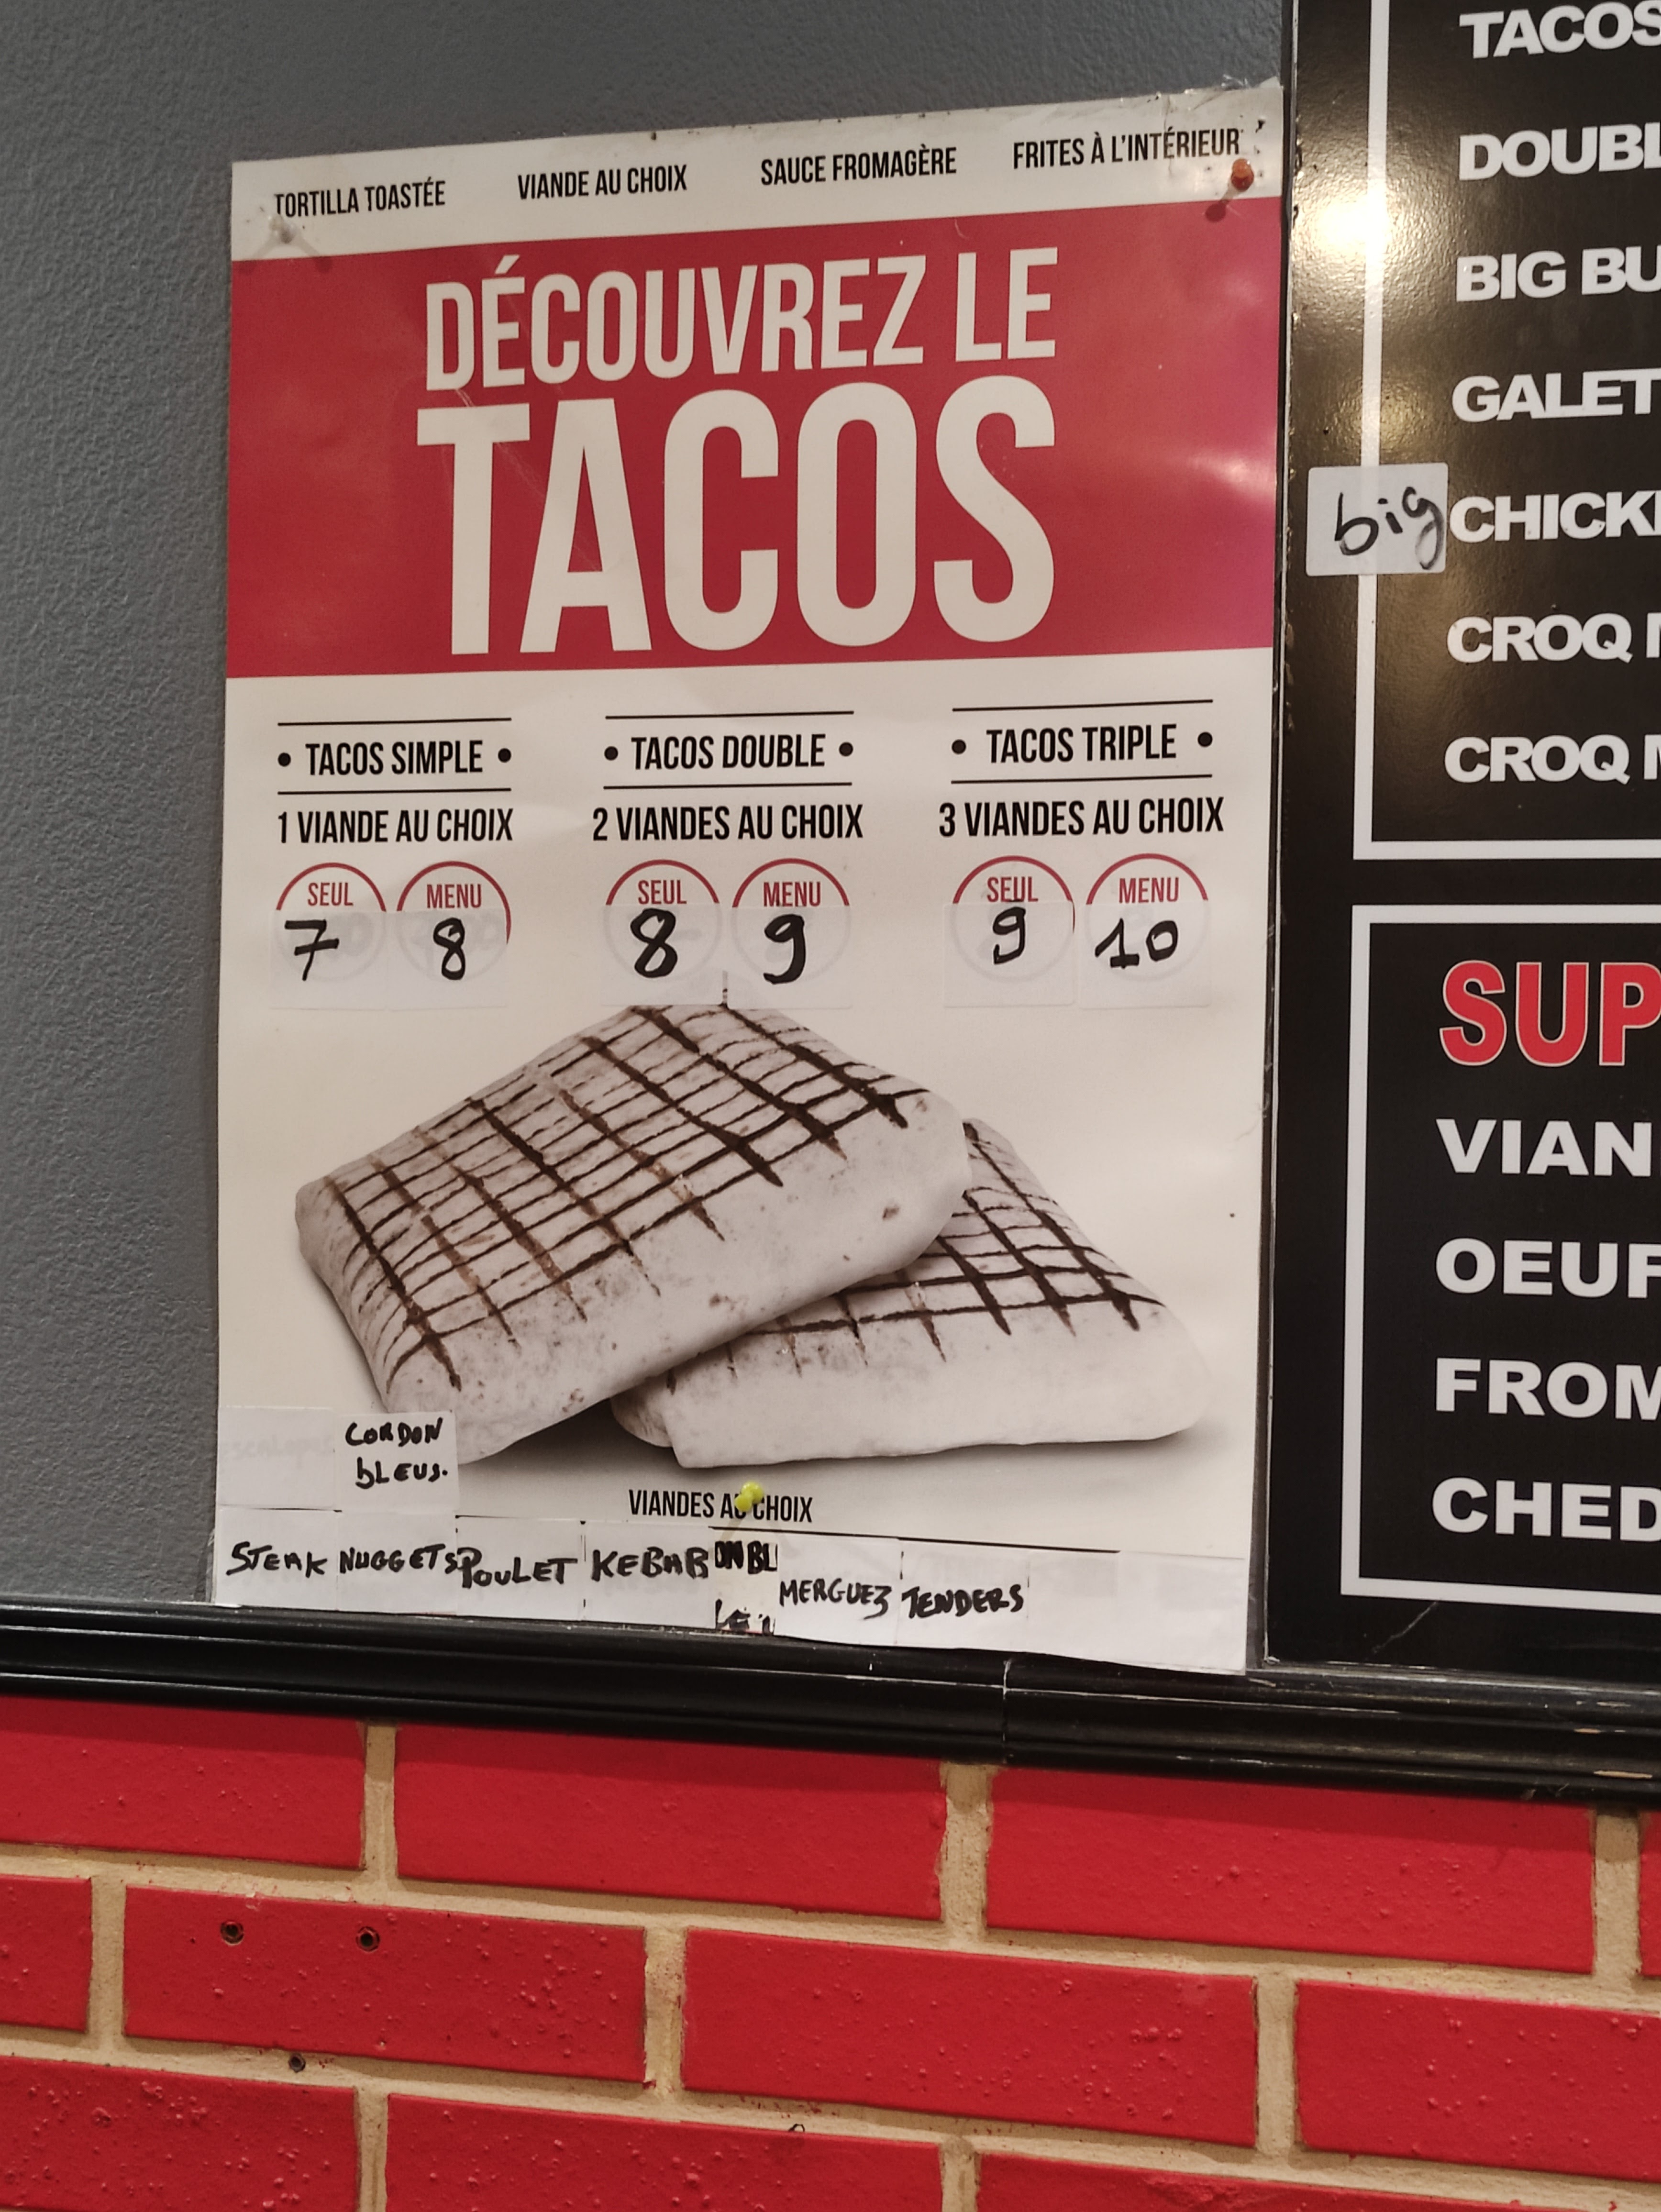 TORTILLA TOASTÉE VIANDE AU CHOIX SAUCE FROMAGÈRE FRITES À L'INTÉRIEUR
DÉCOUVREZ LE
TACOS
• TACOS SIMPLE • • TACOS DOUBLE • • TACOS TRIPLE •
1 VIANDE AU CHOIX 2 VIANDES AU CHOIX 3 VIANDES AU CHOIX
SEUL MENU SEUL MENU SEUL MENU
7 8 8 9 9 10
CORDON
bLEUS.
VIANDES AU CHOIX
STEAK NUGGETS POULET KEBAB ON BL
MERGUEZ TENDERS
TACOS
DOUBL
BIG BU
GALET
big CHICK
CROQ M
CROQ M
SUP
VIAN
OEUF
FROM
CHED